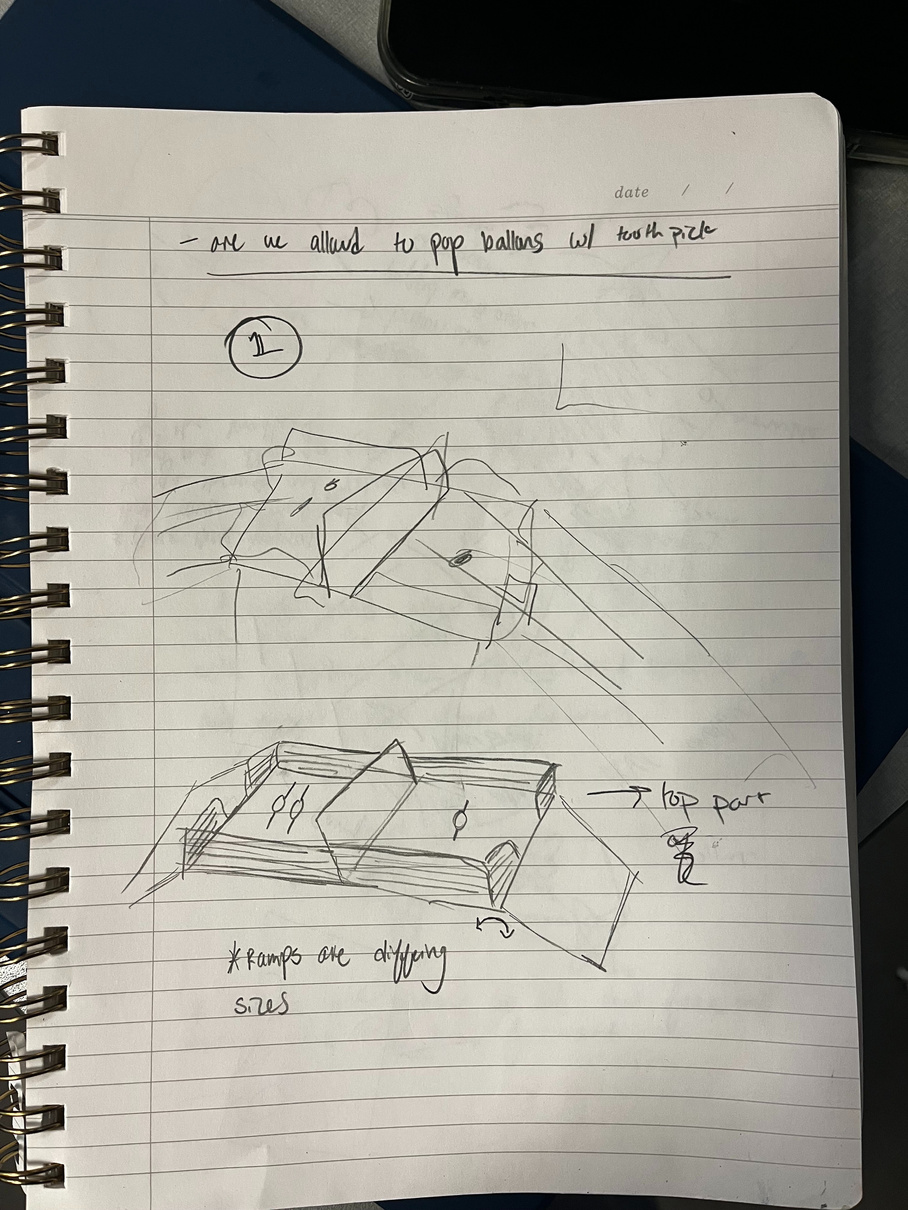 date / /
- are we allowd to pop ballons w/ toothpick
1
→ top part
*Ramps are differing
sizes